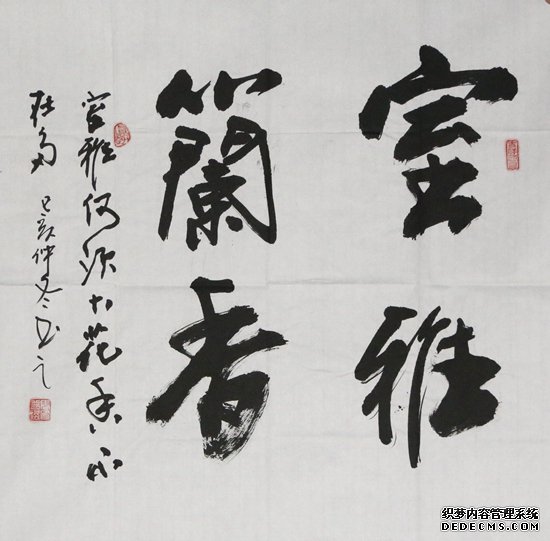 室雅
蘭香
室雅何须大花香不
在多 己亥仲冬书之
织梦内容管理系统
DEDECMS.COM